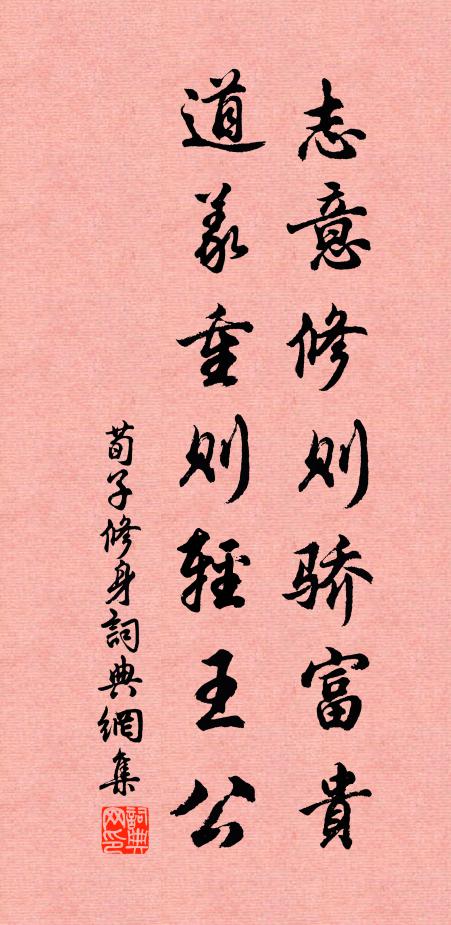 志意修则骄富貴
道义重则輕王公
荀子修身詞典網集
詞典网印